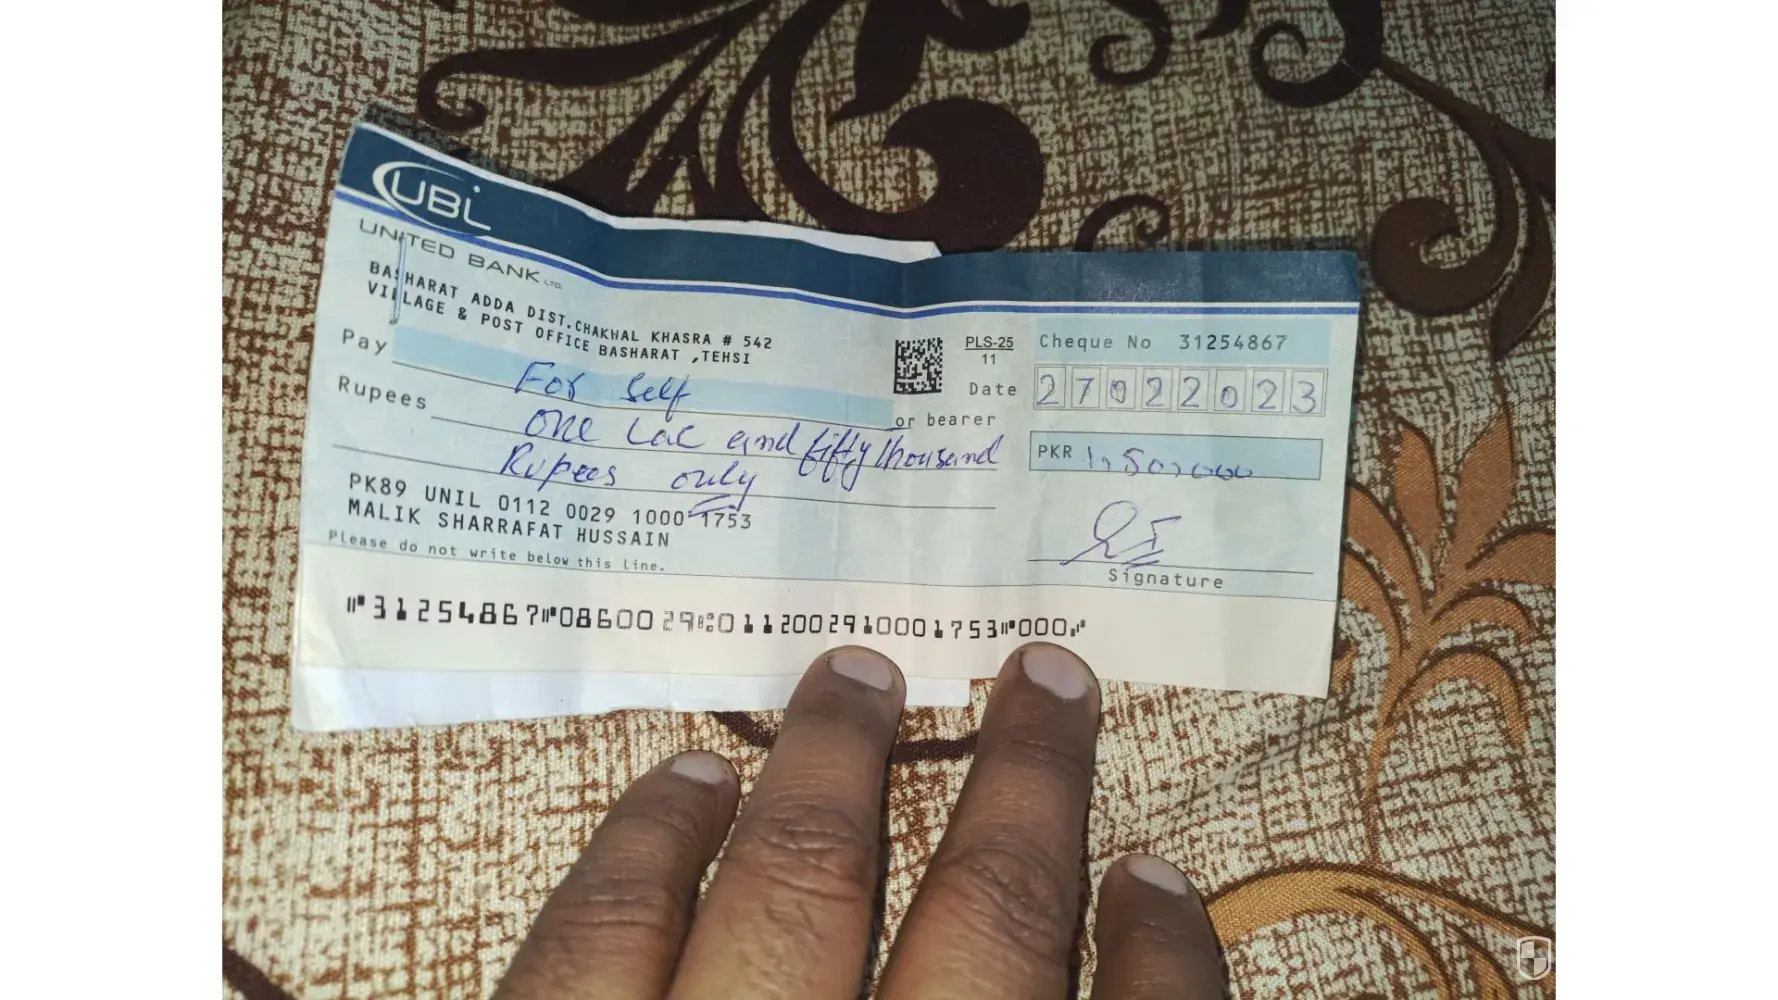 UBL
UNITED BANK LTD.
BASHARAT ADDA DIST.CHAKWAL KHASRA # 542
VILLAGE & POST OFFICE BASHARAT ,TEHSI
PLS-25
11
Cheque No 31254867
Date 27022023
Pay For Self
or bearer
Rupees One Lac and fifty thousand
Rupees only
PKR 1,50,000
PK89 UNIL 0112 0029 1000 1753
MALIK SHARRAFAT HUSSAIN
Signature
Please do not write below this line.
⑈31254867⑈0860029⑆0112002910001753⑈000⑇